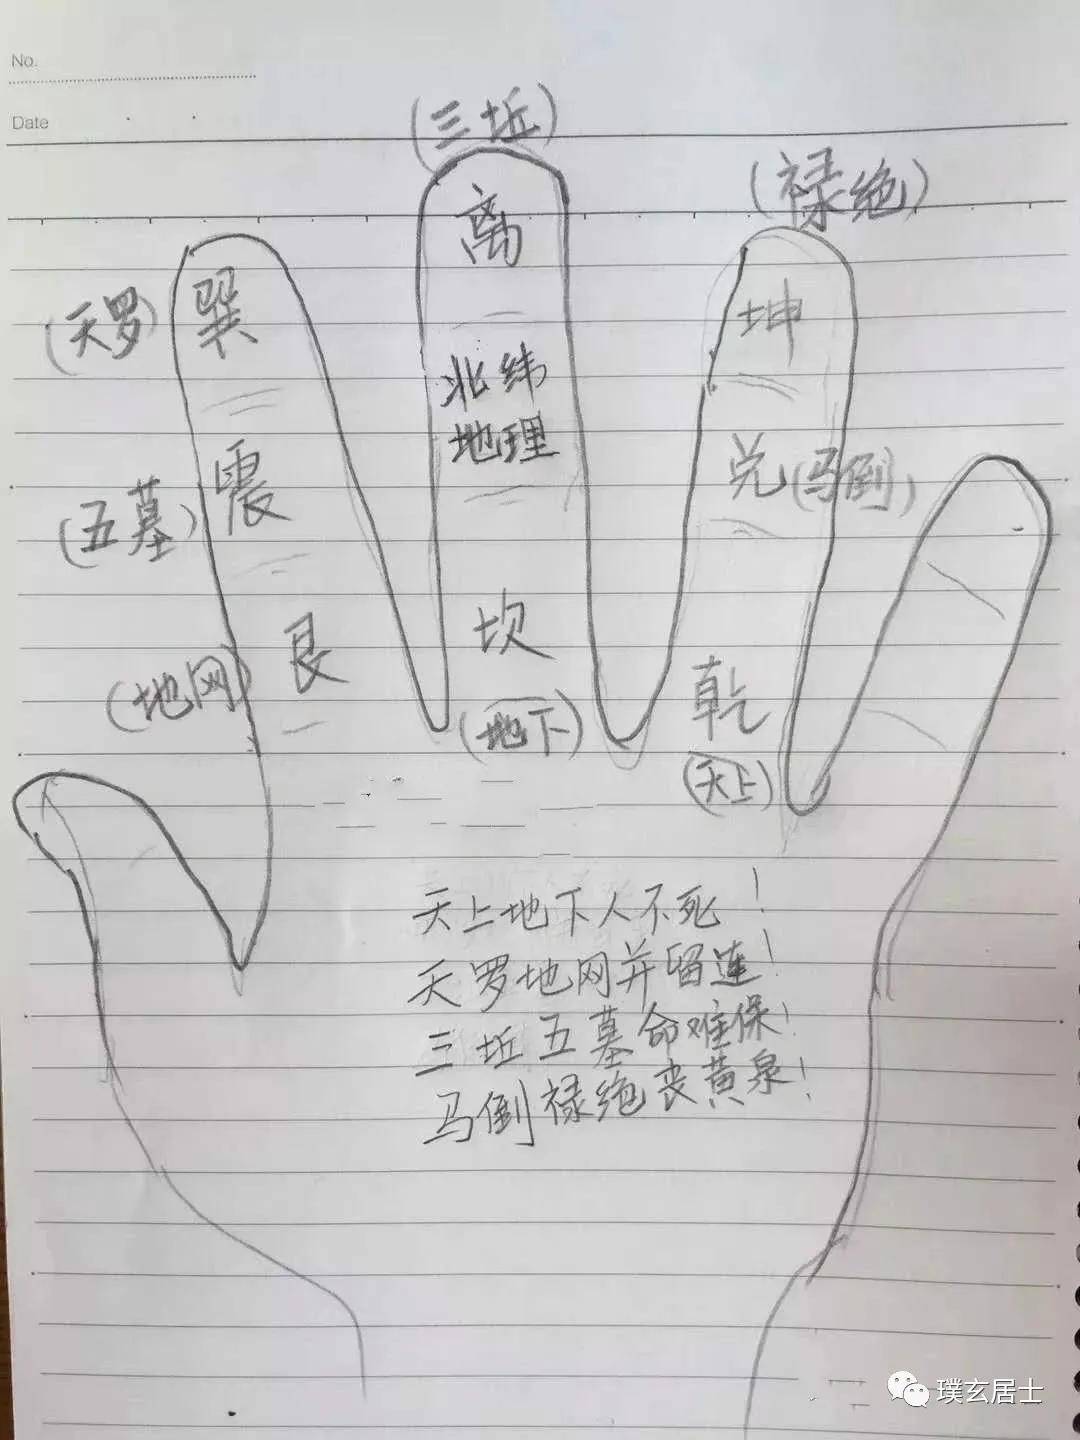 No.
Date
(三坵)
(禄绝)
离
(天罗)
巽
坤
北纬
地理
(五墓)
震
兑
(马倒)
(地网)
艮
坎
(地下)
乾
(天上)
天上地下人不死!
天罗地网并留连!
三坵五墓命难保!
马倒禄绝丧黄泉!
璞玄居士